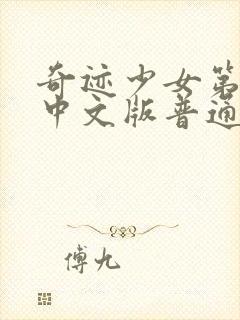 奇迹少女第
中文版普通
傅九